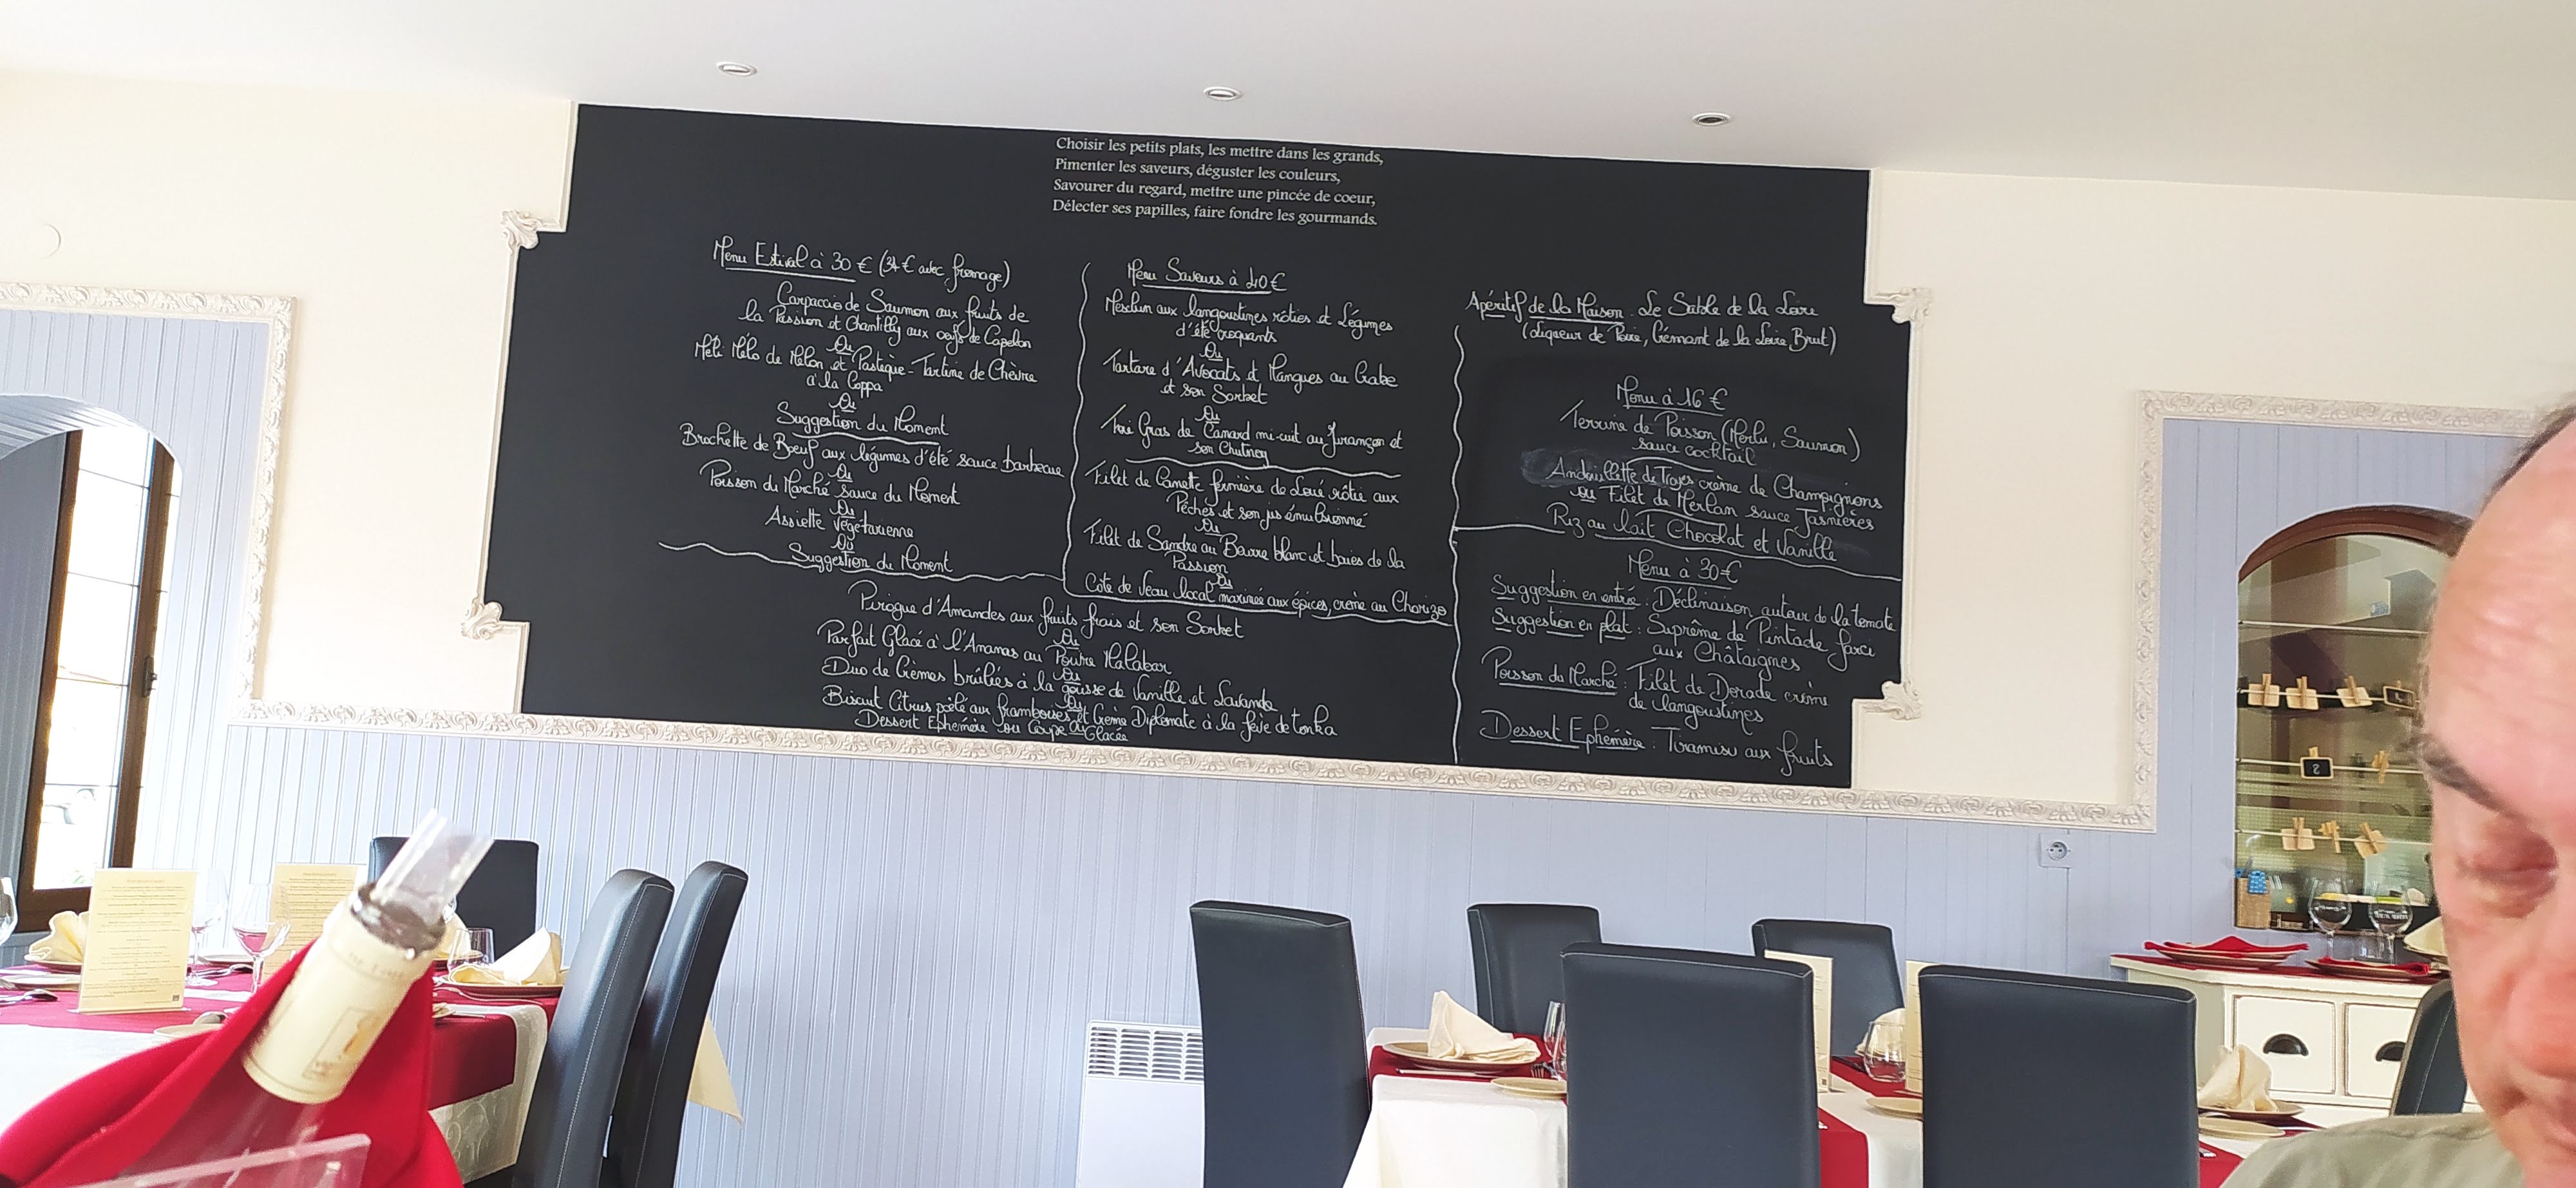 Choisir les petits plats, les mettre dans les grands,
Pimenter les saveurs, déguster les couleurs,
Savourer du regard, mettre une pincée de coeur,
Délecter ses papilles, faire fondre les gourmands.
Menu Estival à 30 € (34 € avec fromage)
Carpaccio de Saumon aux fruits de
la Passion et Chantilly aux oeufs de Capelan
Ou
Méli Mélo de Melon et Pastèque - Tartine de Chèvre
à la Coppa
Ou
Suggestion du Moment
Brochette de Boeuf aux légumes d'été sauce barbecue
Ou
Poisson du Marché sauce du Moment
Ou
Assiette végétarienne
Ou
Suggestion du Moment
Menu Saveurs à 40 €
Mesclun aux langoustines rôties et Légumes
d'été croquants
Ou
Tartare d'Avocats et Mangues au Crabe
et son Sorbet
Ou
Foie Gras de Canard mi-cuit au Jurançon et
son Chutney
Filet de Canette fermière de Loué rôtie aux
Pêches et son jus émulsionné
Ou
Filet de Sandre au Beurre blanc et baies de la
Passion
Ou
Côte de Veau local marinée aux épices, crème au Chorizo
Pirogue d'Amandes aux fruits frais et son Sorbet
Ou
Parfait Glacé à l'Ananas au Poivre Malabar
Ou
Duo de Crèmes brûlées à la gousse de Vanille et Lavande
Ou
Biscuit Citrus poêlé aux framboises et Crème Diplomate à la fève de tonka
Ou
Dessert Ephémère ou Coupe Glacée
Apéritif de la Maison : Le Sable de la Loire
(Liqueur de Poire, Crémant de la Loire Brut)
Menu à 16 €
Terrine de Poisson (Merlu, Saumon)
sauce cocktail
Andouillette de Troyes crème de Champignons
ou Filet de Merlan sauce Jasnières
Riz au lait Chocolat et Vanille
Menu à 30 €
Suggestion en entrée : Déclinaison autour de la tomate
Suggestion en plat : Suprême de Pintade farci
aux Châtaignes
Poisson du Marché : Filet de Dorade crème
de langoustines
Dessert Ephémère : Tiramisu aux fruits